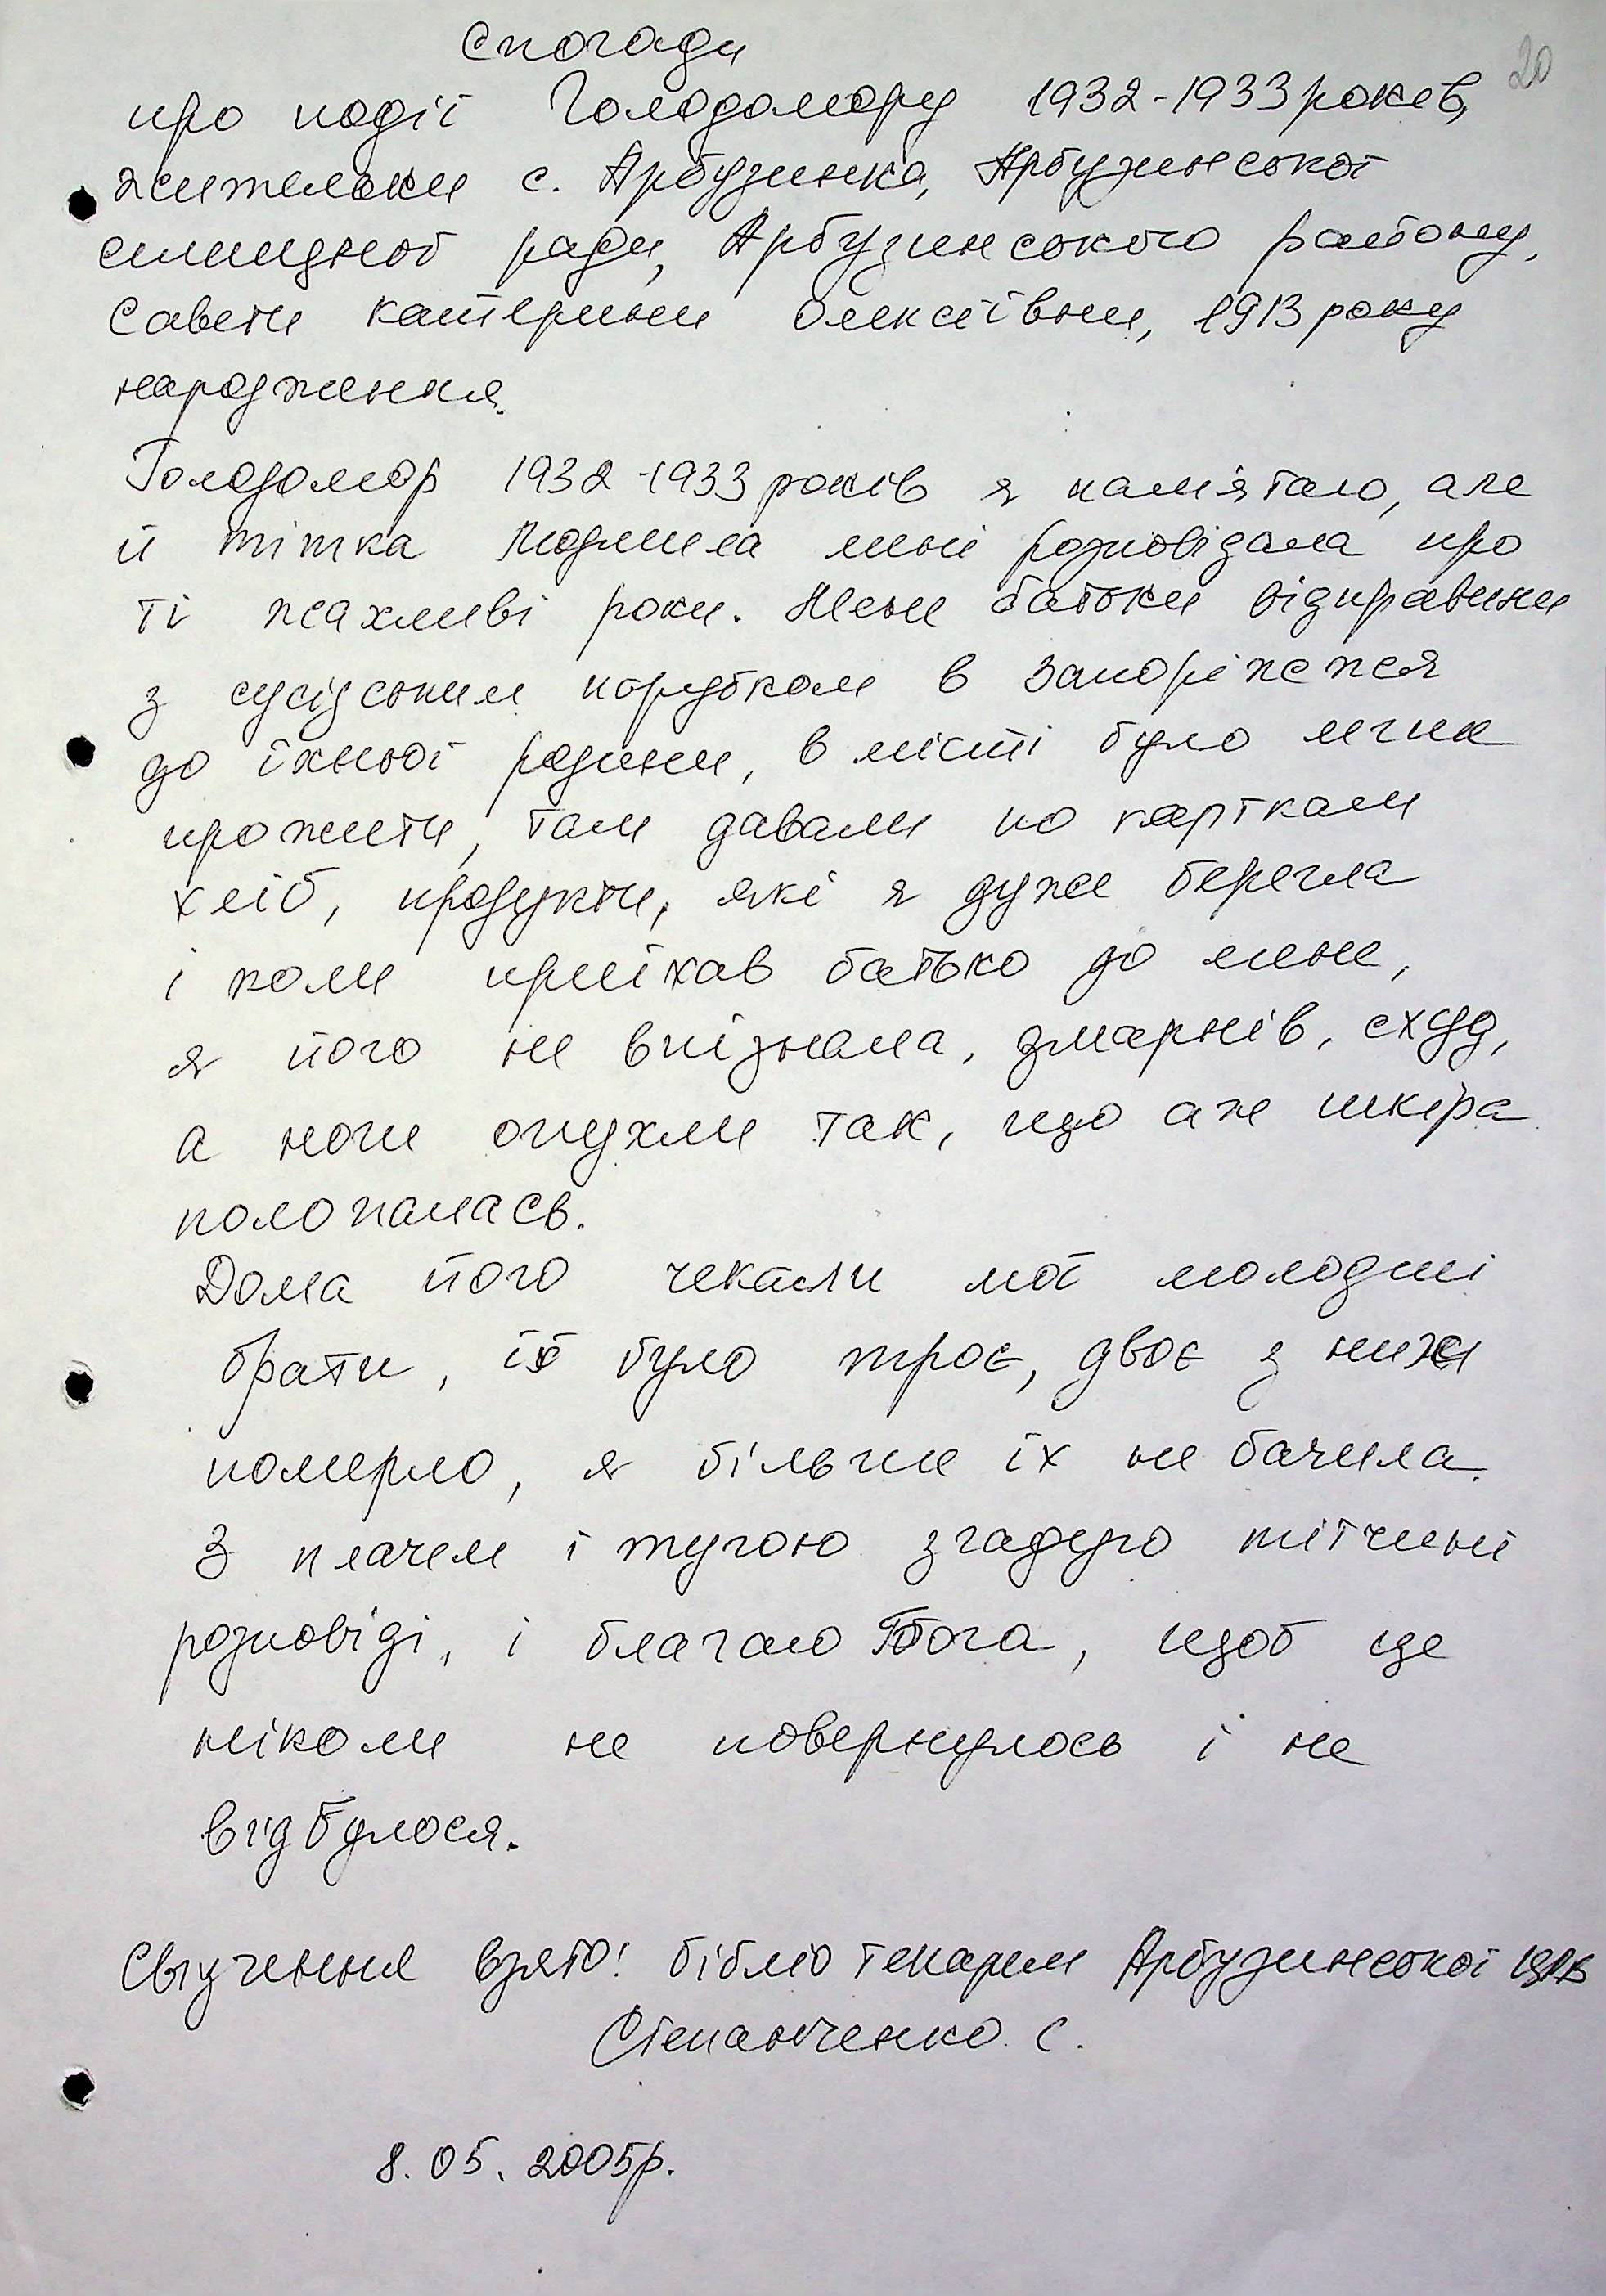 Спогади
20
про події Голодомору 1932-1933 років,
жительки с. Арбузинка, Арбузинської
селищної ради, Арбузинського району,
Савети Катерини Олексіївни, 1913 року
народження.
Голодомор 1932-1933 років я памʼятаю, але
й тітка Людмила мені розповідала про
ті жахливі роки. Мене батьки відправили
з сусідським парубком в Запоріжжя
до їхньої родини, в місті було легше
прожити, там давали по карткам
хліб, продукти, які я дуже берегла
і коли приїхав батько до мене,
я його не впізнала, змарнів, схуд,
а ноги опухли так, що аж шкіра
полопалась.
Дома його чекали мої молодші
брати, їх було троє, двоє з них
померло, я більше їх не бачила.
З плачем і тугою згадую тітчині
розповіді, і благаю Бога, щоб це
ніколи не повернулось і не
відбулося.
Свідчення взято: бібліотекарем Арбузинської ЦРБ
Степанченко С.
8.05.2005р.